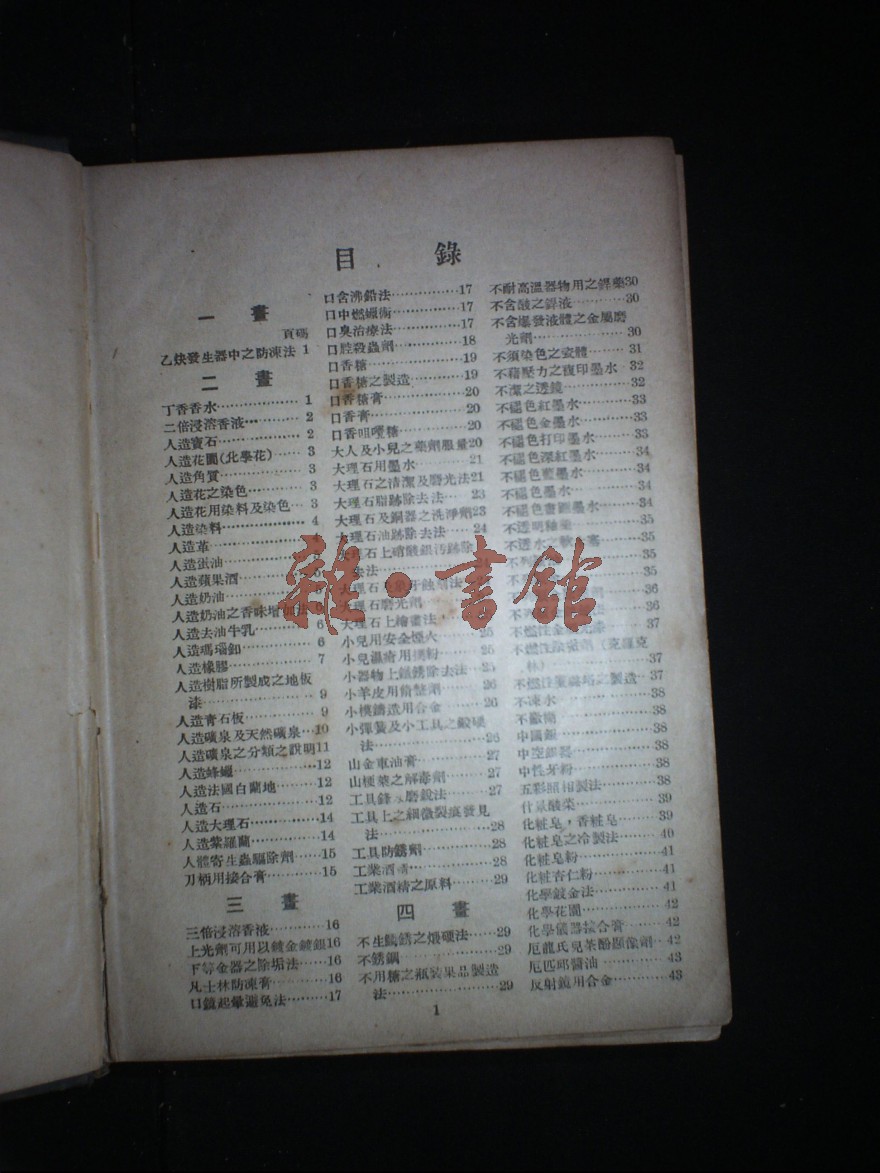 目錄
一畫
頁碼
乙炔發生器中之防凍法 1
二畫
丁香香水············1
二倍浸溶香液·········2
人造寶石············2
人造花園(化學花)···3
人造角質············3
人造花之染色·········3
人造花用染料及染色···3
人造染料············4
人造革
人造蛋油
人造蘋果酒
人造奶油
人造奶油之香味增加法
人造去油牛乳·········6
人造瑪瑙釦·········6
人造橡膠············7
人造樹脂所製成之地板
漆············9
人造青石板·········9
人造礦泉及天然礦泉···10
人造礦泉之分類之說明11
人造蜂蠟············12
人造法國白蘭地······12
人造石············12
人造大理石·········14
人造紫羅蘭·········14
人體寄生蟲驅除劑···15
刀柄用接合膏······15
三畫
三倍浸溶香液······16
上光劑可用以鍍金鍍銀16
下等金器之除垢法···16
凡士林防凍膏······16
口鏡起暈避免法···17
口含沸鉛法·········17
口中燃蠟術·········17
口臭治療法·········17
口腔殺蟲劑·········18
口香糖············19
口香糖之製造······19
口香糖膏············20
口香膏············20
口香咀嚼糖·········20
大人及小兒之藥劑服量20
大理石用墨水······21
大理石之清潔及磨光法21
大理石脂跡除去法···23
大理石及銅器之洗淨劑23
大理石油跡除去法···24
大理石上硝酸銀污跡除
去法
大理石磨光劑
大理石上繪畫法
小兒用安全煙火······25
小器物上鐵銹除去法···25
小羊皮用清整劑······26
小模鑄造用合金······26
小彈簧及小工具之鍛硬
法············26
山金車油膏·········27
山梗菜之解毒劑······27
工具鋒刃磨銳法······27
工具上之細微裂痕發見
法············28
工具防銹劑·········28
工業酒精············28
工業酒精之原料······29
四畫
不生鏽鐵之煅硬法···29
不銹鋼············29
不用糖之瓶裝果品製造
法············29
不耐高溫器物用之銲藥30
不含酸之銲液······30
不含爆發液體之金屬磨
光劑············30
不須染色之瓷體······31
不藉壓力之複印墨水 32
不潔之透鏡·········32
不褪色紅墨水······33
不褪色金墨水······33
不褪色打印墨水······33
不褪色深紅墨水······34
不褪色藍墨水······34
不褪色墨水·········34
不褪色畫圖墨水······34
不透明釉藥·········35
35
35
36
36
37
林)·········37
38
不凍水············38
38
中國銀············38
中空銀器············38
中性牙粉············38
五彩照相製法······38
什景酸菜············39
化粧皂，香粧皂······39
化粧皂之冷製法······40
化粧皂粉············41
化粧杏仁粉·········41
化學鍍金法·········41
化學花園············42
化學儀器接合膏······42
厄龍氏兒茶酚顯像劑···42
厄匹邱醬油·········43
反射鏡用合金······43
1
雜·書館